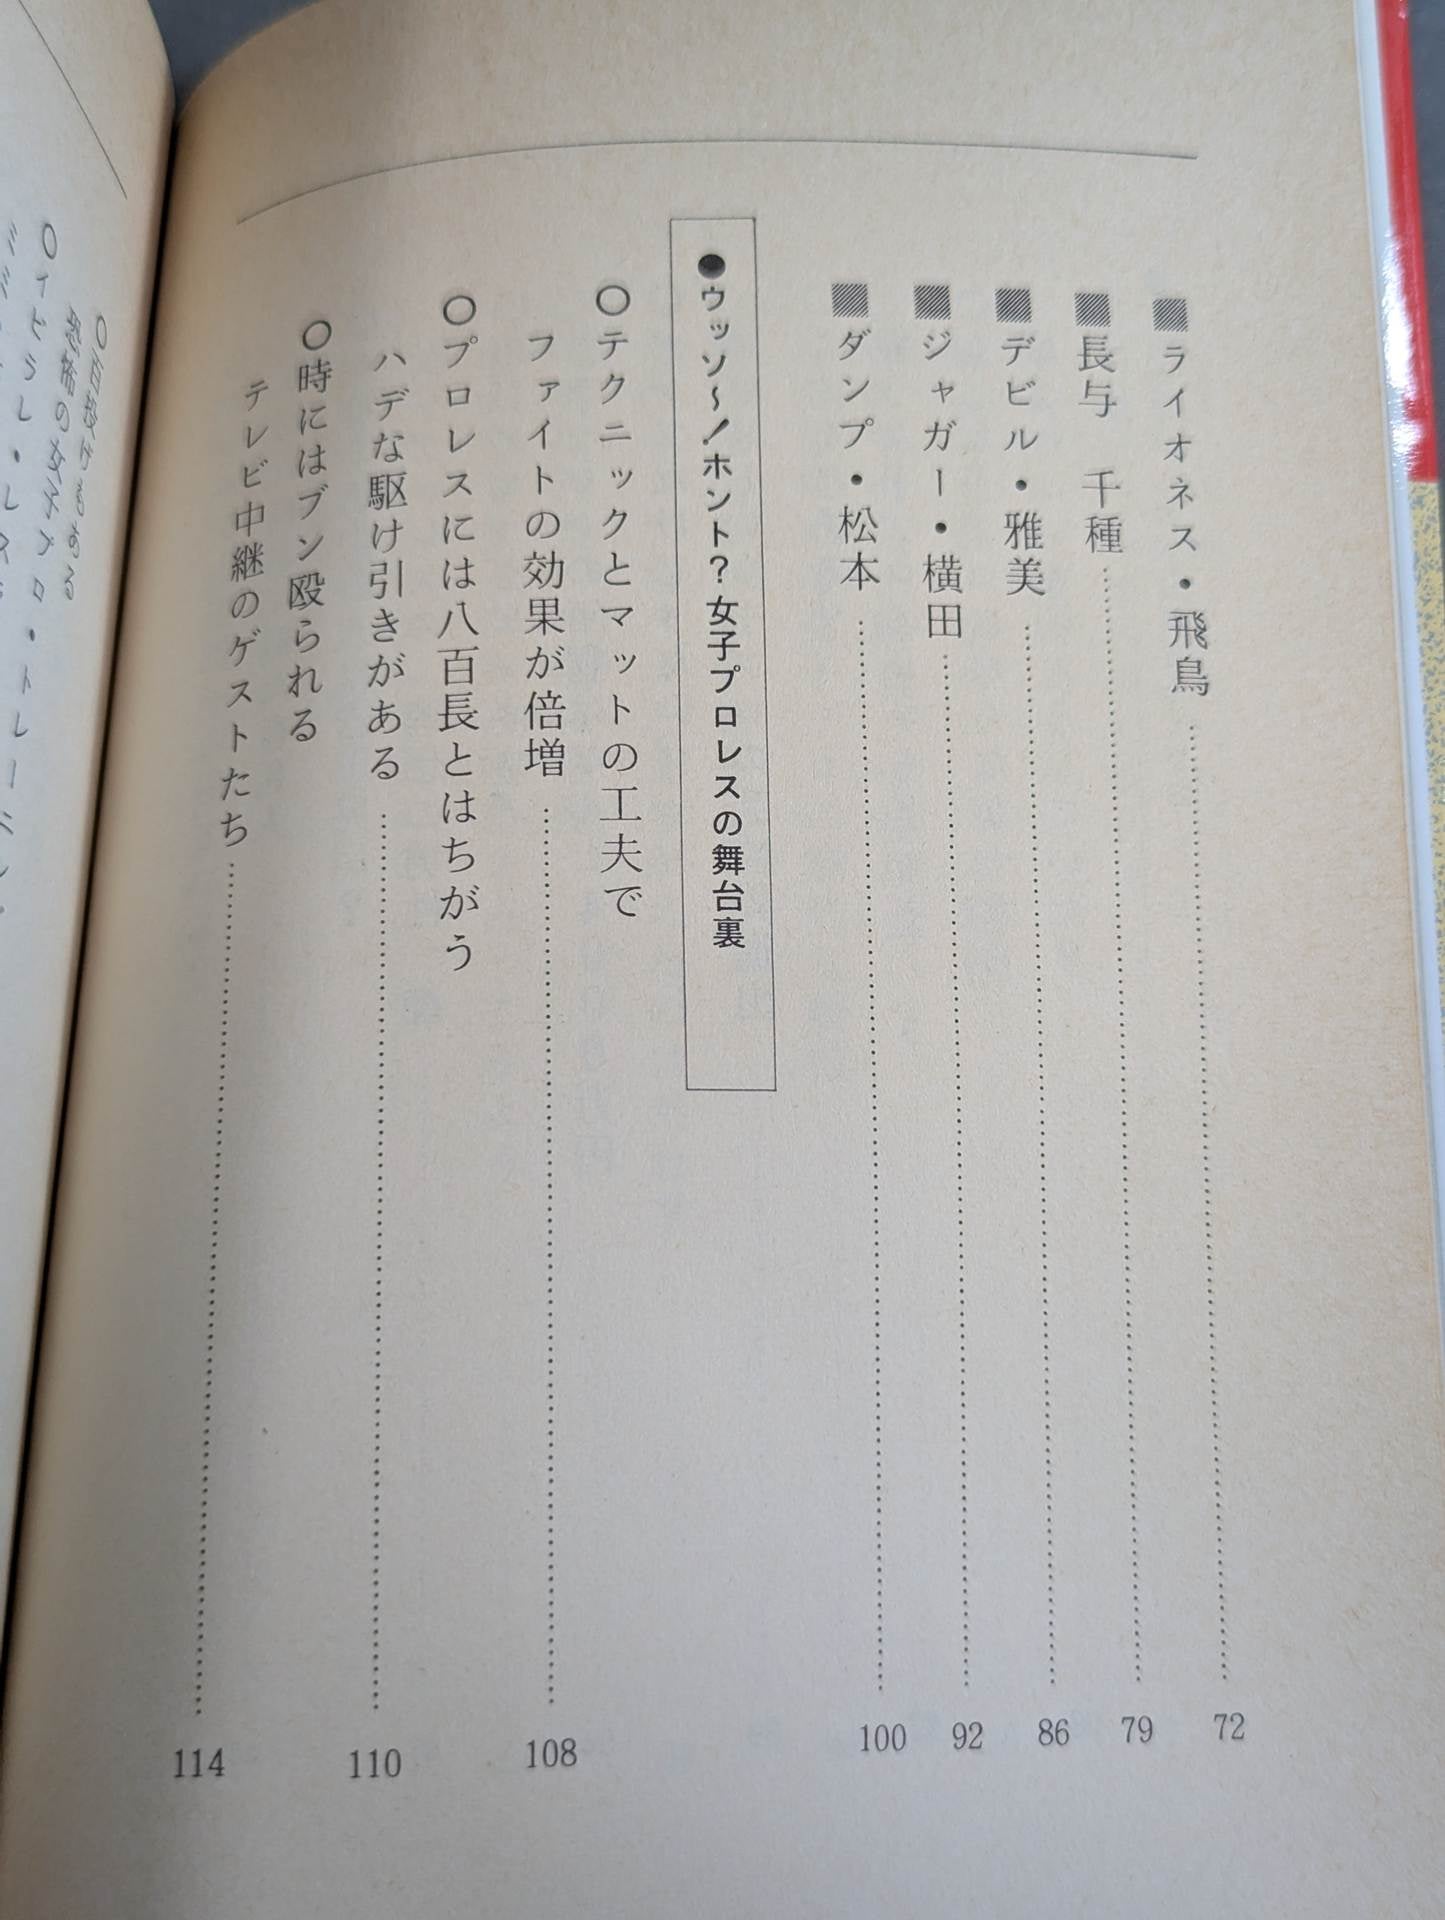 ■ライオネス・飛鳥……72
■長与 千種……79
■デビル・雅美……86
■ジャガー・横田……92
■ダンプ・松本……100
●ウッソ〜!ホント?女子プロレスの舞台裏
○テクニックとマットの工夫で
ファイトの効果が倍増……108
○プロレスには八百長とはちがう
ハデな駆け引きがある……110
○時にはブン殴られる
テレビ中継のゲストたち……114
恐怖の女子プロ・トレーニング